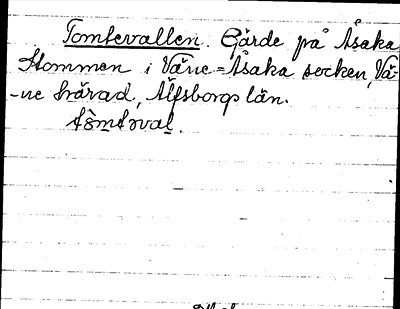 Tomtevallen. Gärde på Åsaka
Stommen i Väne=Åsaka socken, Vä-
-ne härad, Älfsborgs län.